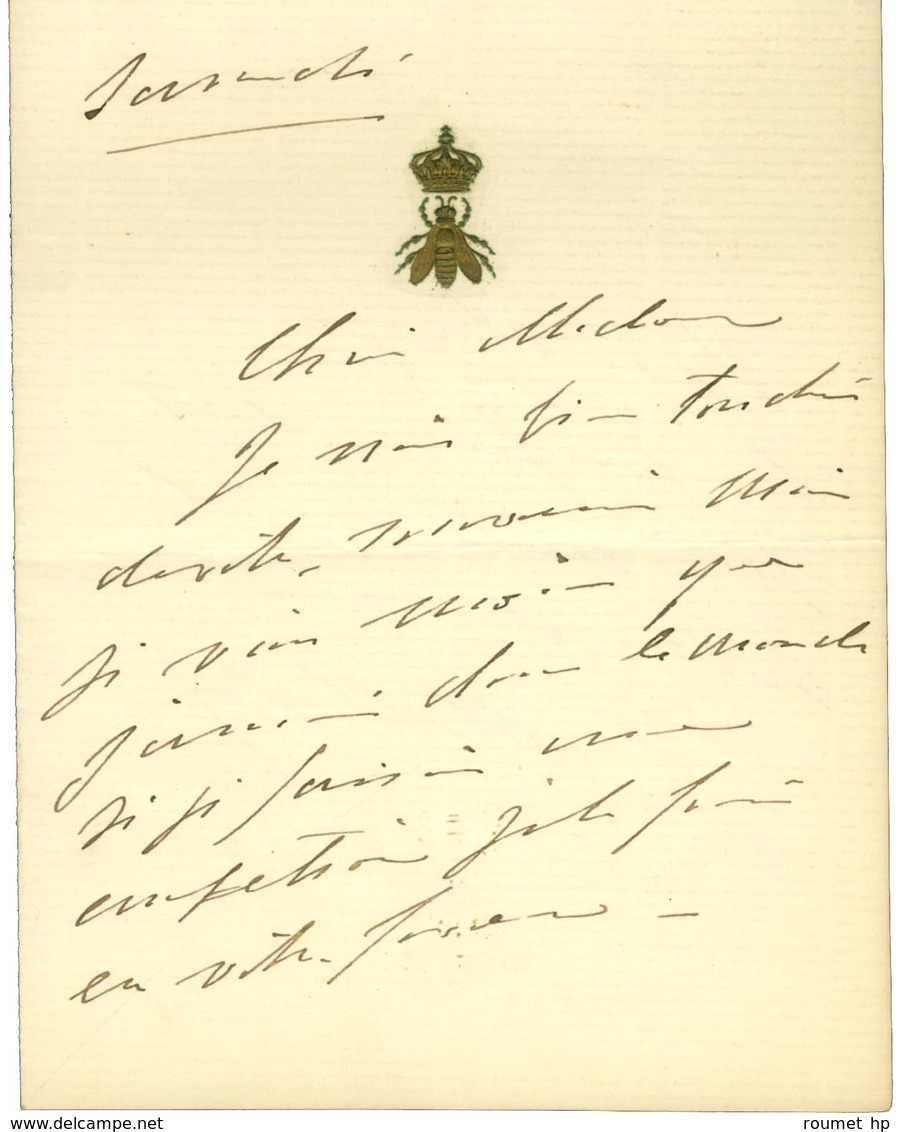 Samedi
Chère Madame
Je suis bien touchée
de votre souvenir mais
je vais moins que
jamais dans le monde
si je faisais une
exception je la ferais
en votre faveur -
roumet hp